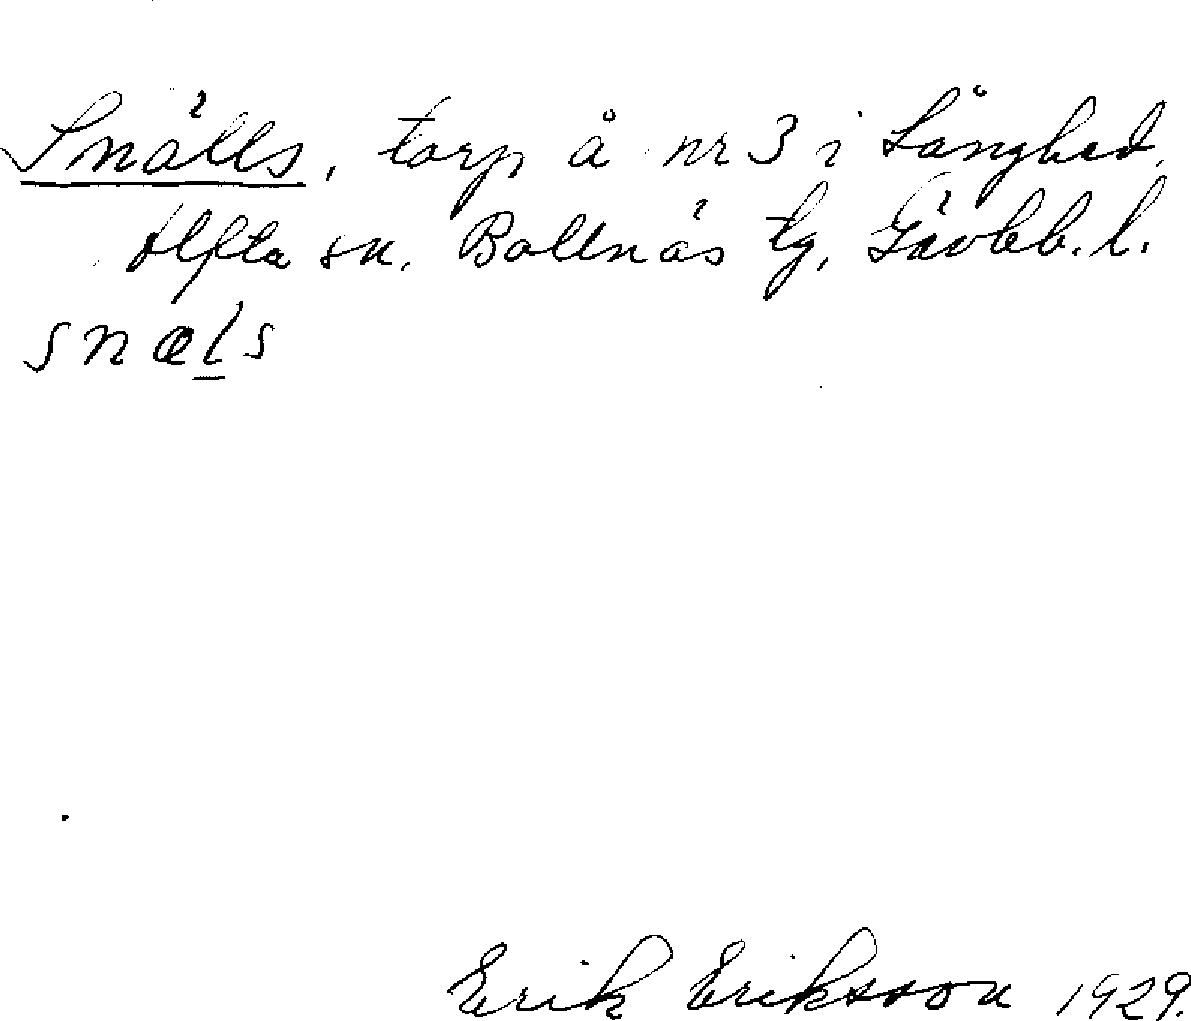 Snälls, torp å nr 3 i Långhed,
Alfta sn. Bollnäs tg, Gävleb. l.
snæl̲s
Erik Eriksson 1929.